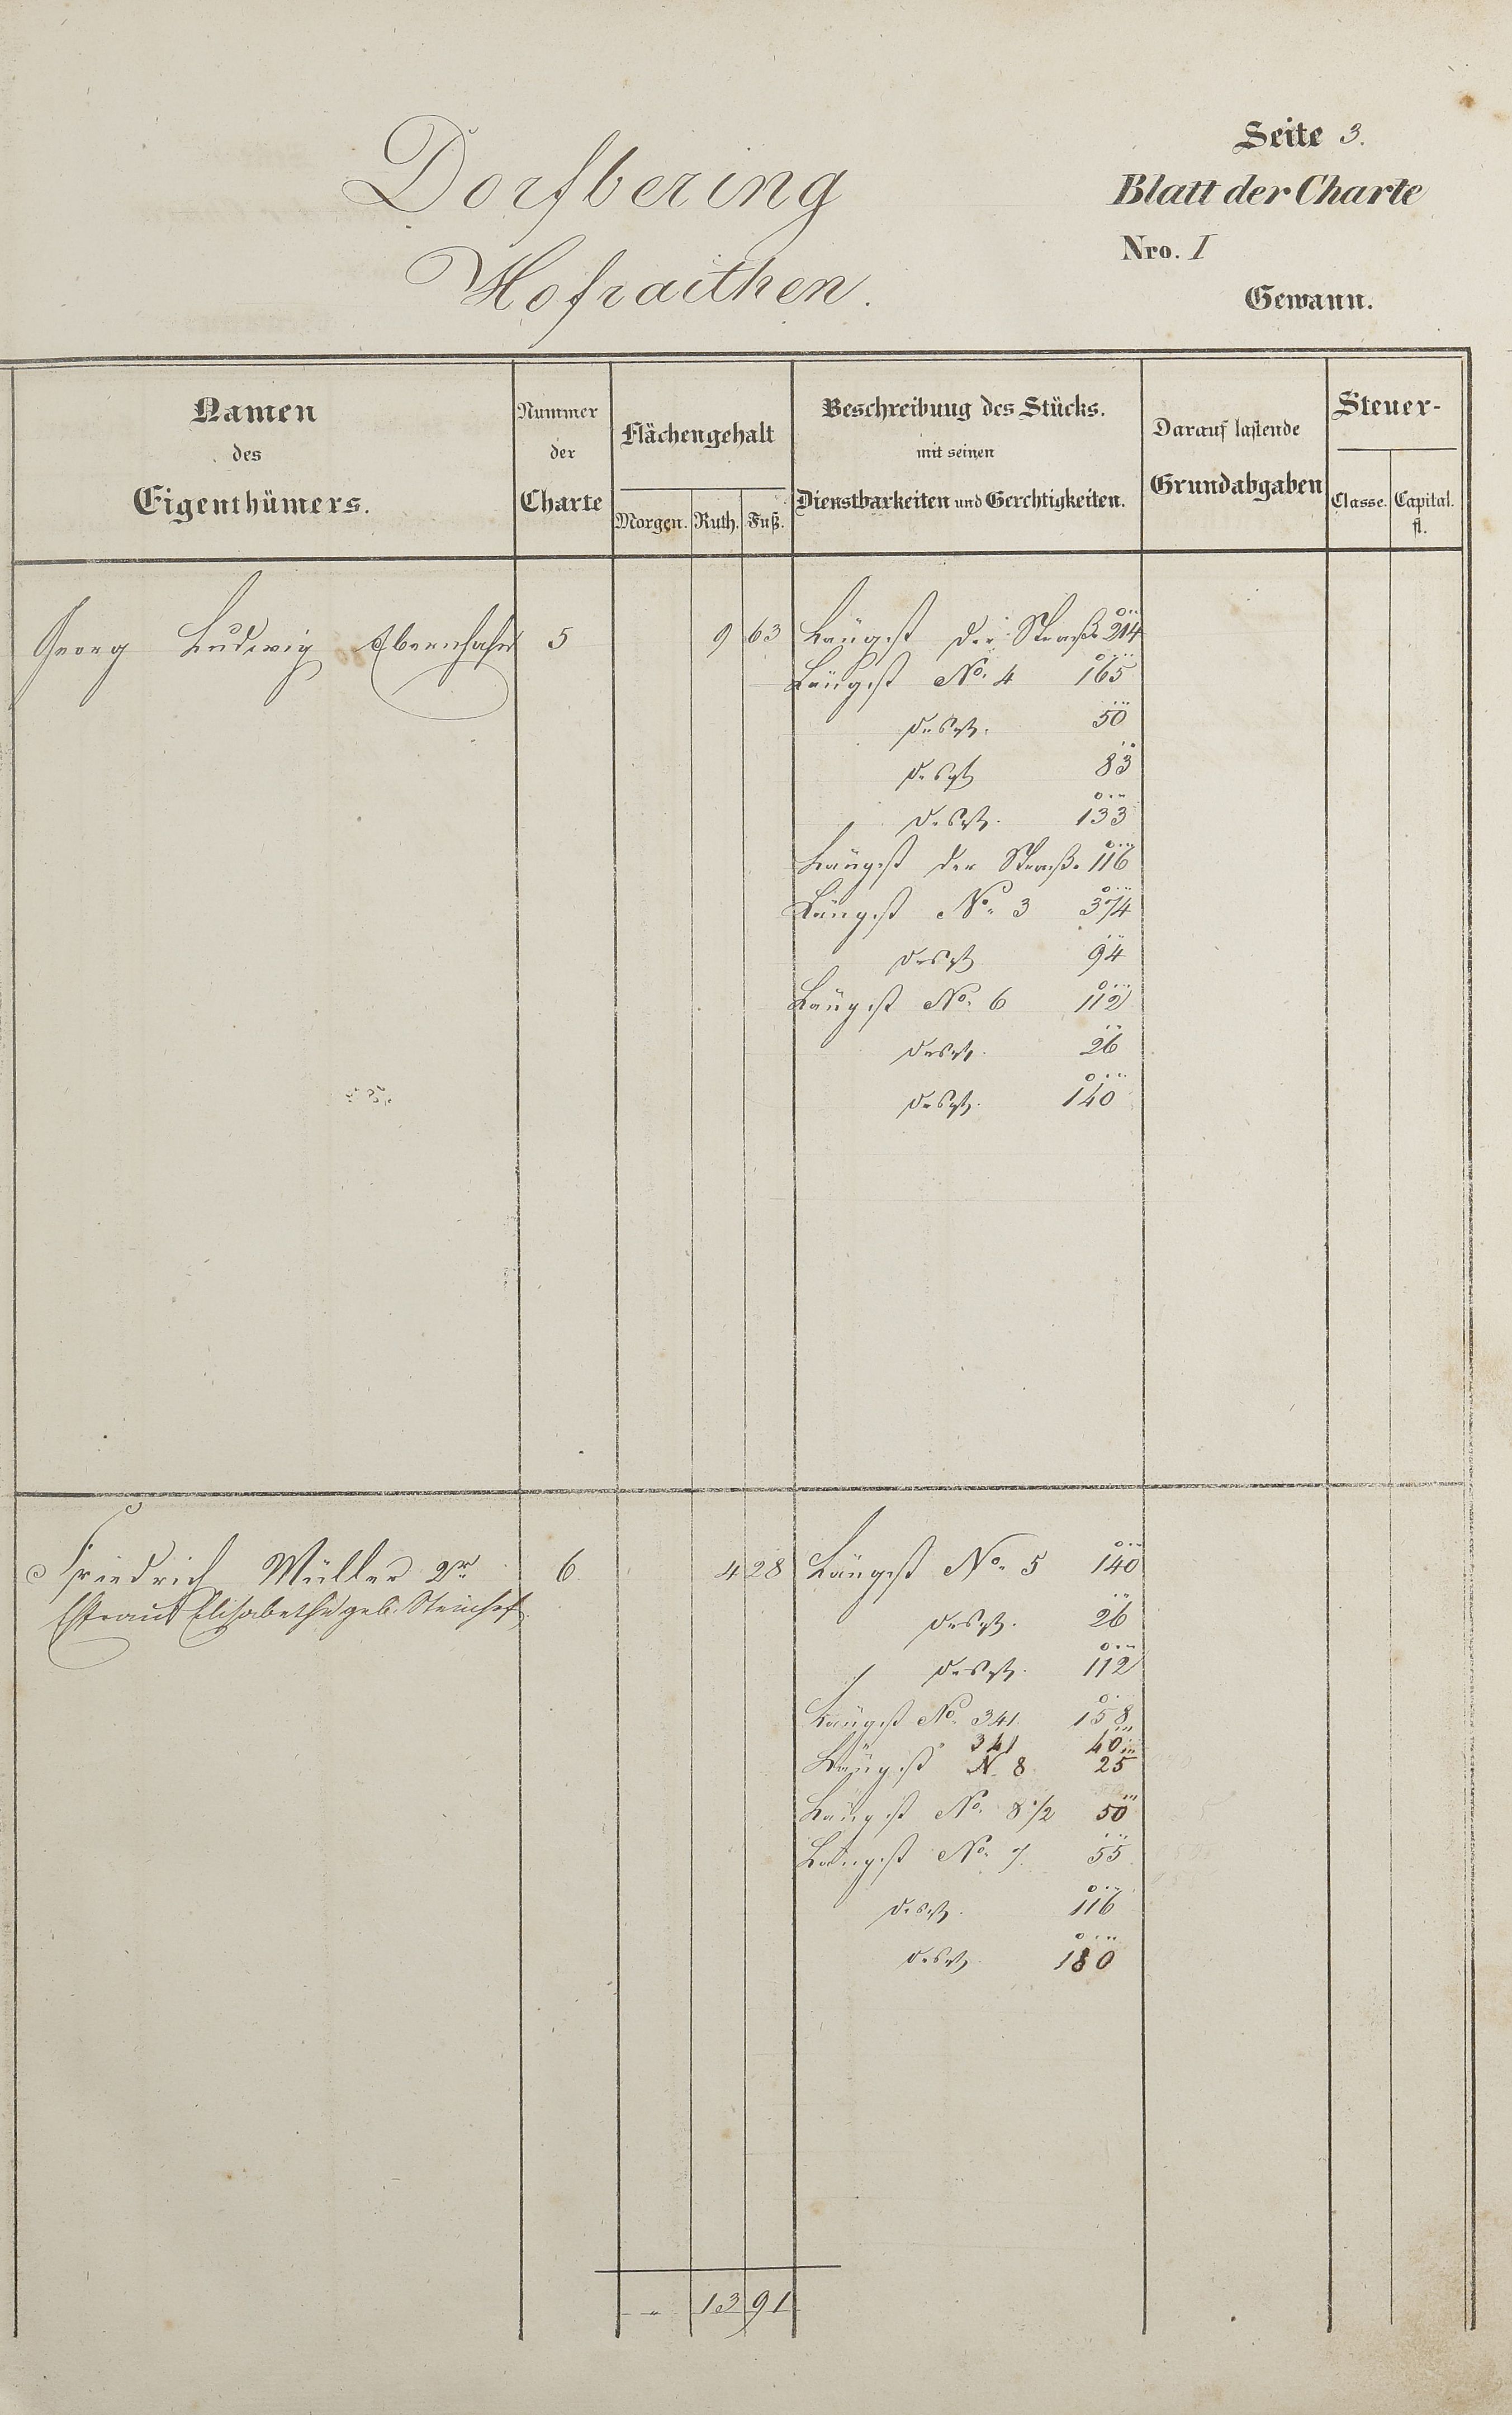 Dorfbering
Hofraithen.
Seite 3.
Blatt der Charte
Nro. I
Gewann.
Namen des Eigenthümers.
Nummer der Charte
Flächengehalt
Morgen. Ruth. Fuß.
Beschreibung des Stücks.
mit seinen
Dienstbarkeiten und Gerechtigkeiten.
Darauf lastende
Grundabgaben
Steuer-
Classe. Capital.
fl.
Georg Ludwig 5 9 63 Längst der Straße 214
Längst No. 4 165
desgl. 50
desgl 83
desgl. 133
Längst der Straße 116
Längst No. 3 374
desgl 94
Längst No. 6 112
desgl. 26
desgl. 140
Friedrich Müller 2r 6. 4 28 Längst No. 5 140
Ehefrau Elisabethe geb. desgl. 26
desgl. 112
Längst No. 341. 158
341 40
Längst N. 8 25
Längst No. 8 1/2 50
Längst No. 7. 55
desgl. 116
desgl. 180
" 13 91